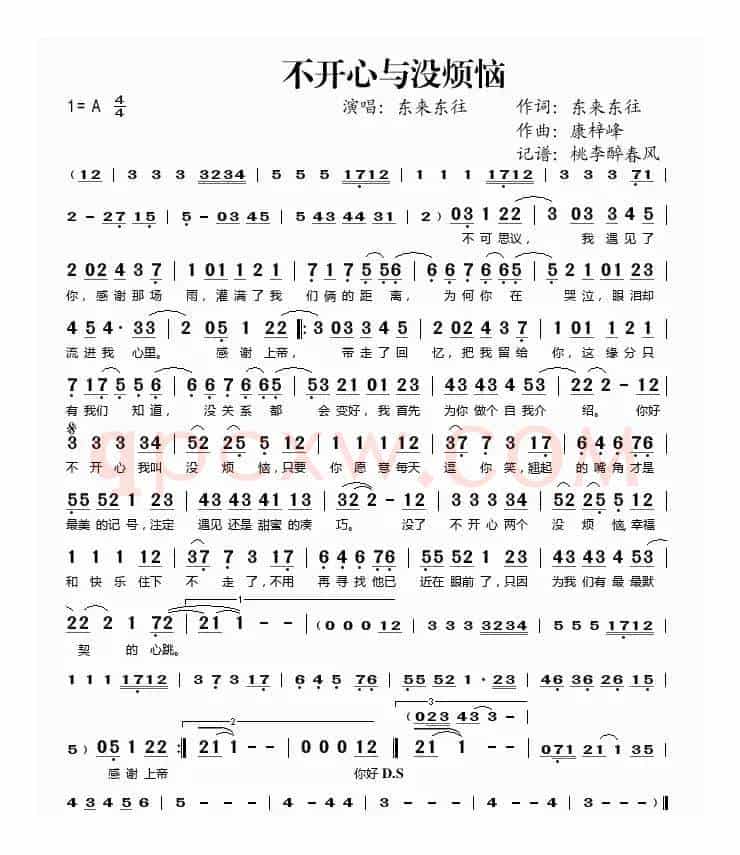 不开心与没烦恼
1= A 4/4 演唱：东来东往 作词：东来东往
作曲：康梓峰
记谱：桃李醉春风
（12 | 3 3 3 3234 | 5 5 5 1712 | 1 1 1 1712 | 3 3 3 71 |
2 - 27 15 | 5 - 03 45 | 5 43 44 31 | 2） 03 1 22 | 3 03 3 4 5 |
不可思议， 我 遇见了
2 02 4 3 7 | 1 01 1 2 1 | 7 1 7 5 56 | 6 6 7 6 65 | 52 01 02 23 |
你，感谢那场 雨，灌满了我 们俩的距 离， 为何你 在 哭泣，眼泪却
4 5 4· 33 | 2 05 1 22 :3 03 3 4 5 | 2 02 4 3 7 | 1 01 1 21 |
流进我 心里。 感谢上帝， 带走了回 忆，把我留给 你，这缘分只
7 17 5 5 6 | 6 6 7 6 65 | 53 21 01 23 | 43 43 4 53 | 22 2 - 12 |
有我们 知道， 没关系 都 会变好，我首先 为你做个自我介 绍。 你好
3 3 3 34 | 52 25 5 12 | 7 1 7 1 12 | 37 7 3 17 | 6 4 64 76 |
不开心我叫 没 烦 恼，只要 你愿意每天 逗 你 笑，翘起 的嘴角才是
55 52 1 01 | 43 43 43 21 | 32 2 - 12 | 3 3 3 34 | 52 25 5 12 |
最美的记号，注定 遇见还是甜蜜的凑 巧。 没了 不开心两个 没 烦恼，幸福
1 1 1 12 | 37 7 3 17 | 6 4 6 76 | 55 52 1 23 | 43 43 4 53 |
和快乐住下 不 走了，不用 再寻找他已 近在眼前了，只因 为我们有最最默
1
22 2 1 72 | 21 1 - - |（0 0 0 12 | 3 3 3 3234 | 5 5 5 1712 |
契 的 心跳。
1 1 1 1712 | 3 7 3 17 | 6 4 5 76 | 55 52 1· 23 | 46 36 26 15 |
2 3
（023 43 3 -
5） 05 1 22 :| 21 1 - - | 0 0 0 12 | 21 1 - - | 071 21 1 35 |
感谢上帝 你好 D.S
4 3 45 6 | 5 - - - | 3 - - - | 4 - - - | 3 - - - ）|
qpcxw.com